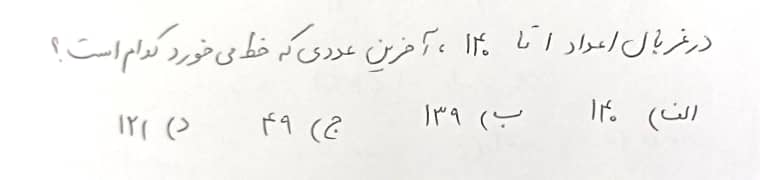 در غربال اعداد ۱ تا ۱۴۰ ، آخرین عددی که خط می خورد کدام است ؟
الف) ۱۴۰ ب) ۱۳۹ ج) ۴۹ د) ۱۲۱